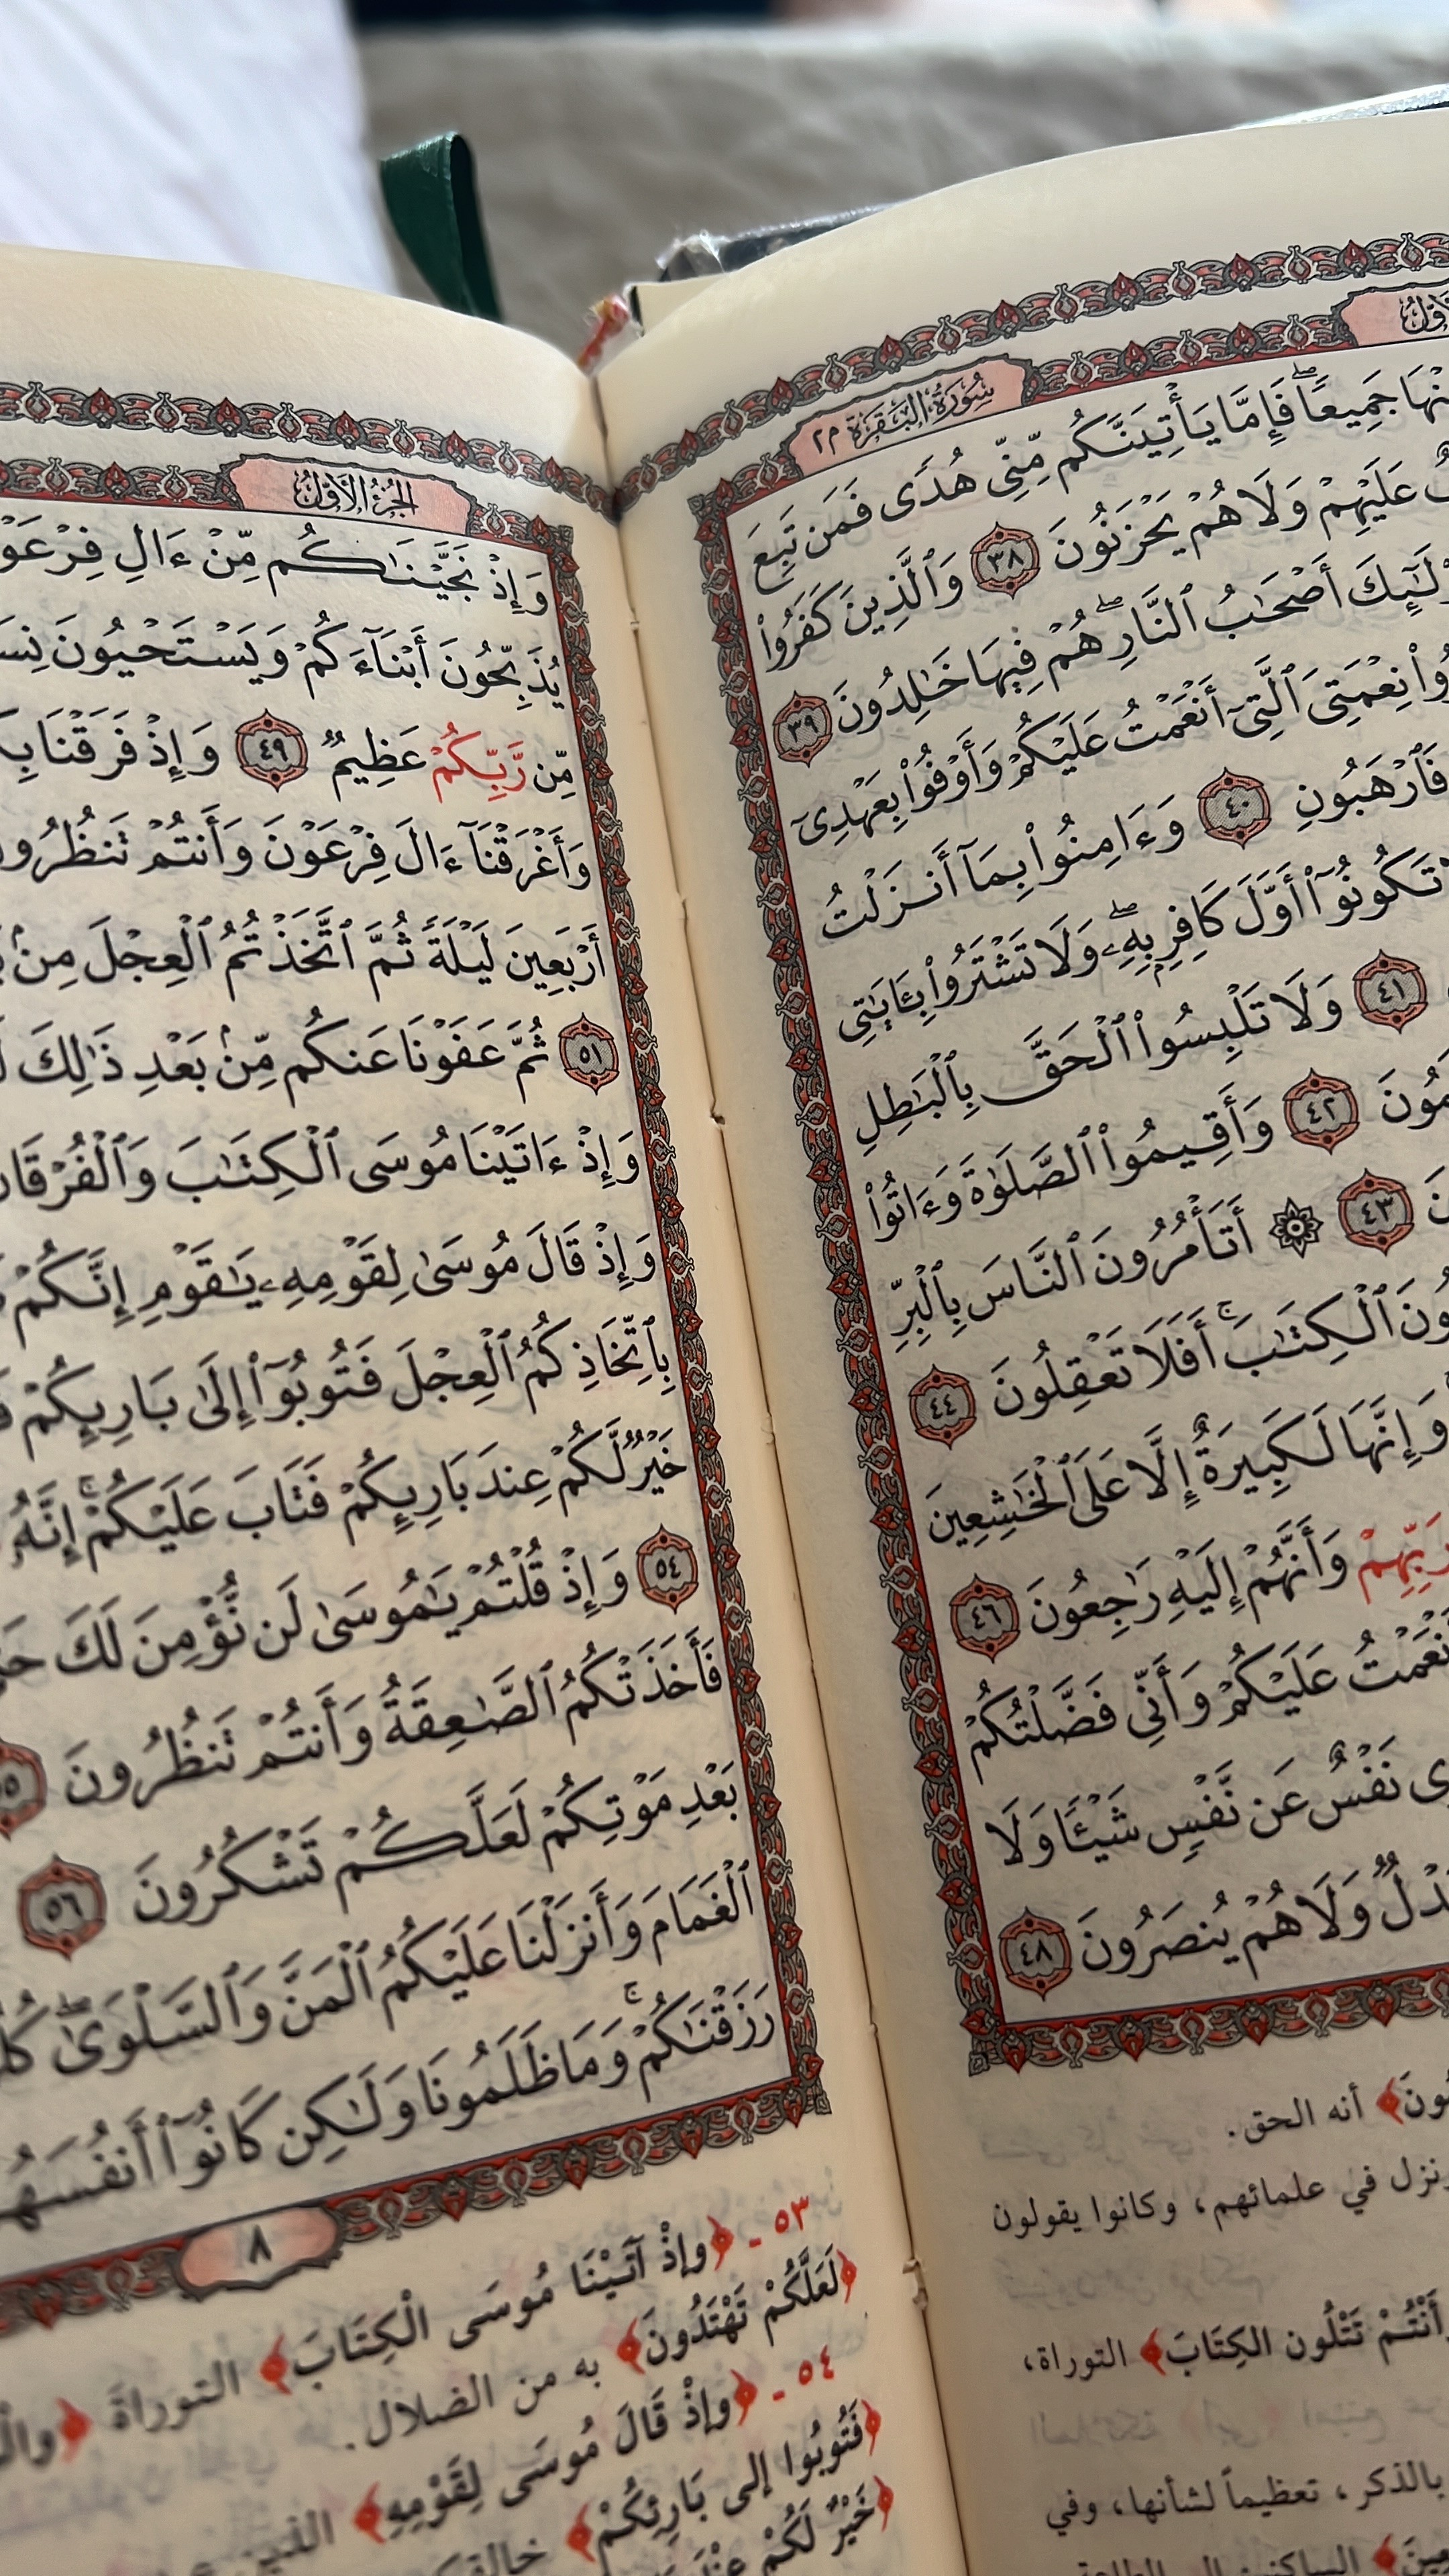 سُورَةُ البَقَرَة ٢م
جَمِيعًاۖ فَإِمَّا يَأْتِيَنَّكُم مِّنِّى هُدًى فَمَن تَبِعَ
عَلَيْهِمْ وَلَا هُمْ يَحْزَنُونَ ٣٨ وَٱلَّذِينَ كَفَرُوا۟
أَصْحَٰبُ ٱلنَّارِۖ هُمْ فِيهَا خَٰلِدُونَ ٣٩
نِعْمَتِىَ ٱلَّتِىٓ أَنْعَمْتُ عَلَيْكُمْ وَأَوْفُوا۟ بِعَهْدِىٓ
فَٱرْهَبُونِ ٤٠ وَءَامِنُوا۟ بِمَآ أَنزَلْتُ
تَكُونُوٓا۟ أَوَّلَ كَافِرٍۭ بِهِۦۖ وَلَا تَشْتَرُوا۟ بِـَٔايَٰتِى
٤١ وَلَا تَلْبِسُوا۟ ٱلْحَقَّ بِٱلْبَٰطِلِ
٤٢ وَأَقِيمُوا۟ ٱلصَّلَوٰةَ وَءَاتُوا۟
٤٣ ۞ أَتَأْمُرُونَ ٱلنَّاسَ بِٱلْبِرِّ
ٱلْكِتَٰبَۚ أَفَلَا تَعْقِلُونَ ٤٤
وَإِنَّهَا لَكَبِيرَةٌ إِلَّا عَلَى ٱلْخَٰشِعِينَ
رَبِّهِمْ وَأَنَّهُمْ إِلَيْهِ رَٰجِعُونَ ٤٦
أَنْعَمْتُ عَلَيْكُمْ وَأَنِّى فَضَّلْتُكُمْ
نَفْسٌ عَن نَّفْسٍ شَيْـًٔا وَلَا
عَدْلٌ وَلَا هُمْ يُنصَرُونَ ٤٨
أنه الحق.
في علمائهم، وكانوا يقولون
تَتْلُونَ الكِتَابَ﴾ التوراة،
بالذكر، تعظيماً لشأنها، وفي
الجُزْءُ الأَوَّلُ
وَإِذْ نَجَّيْنَٰكُم مِّنْ ءَالِ
يُذَبِّحُونَ أَبْنَآءَكُمْ وَيَسْتَحْيُونَ
مِّن رَّبِّكُمْ عَظِيمٌ ٤٩ وَإِذْ فَرَقْنَا
وَأَغْرَقْنَآ ءَالَ فِرْعَوْنَ وَأَنتُمْ تَنظُرُونَ
أَرْبَعِينَ لَيْلَةً ثُمَّ ٱتَّخَذْتُمُ ٱلْعِجْلَ مِنۢ
٥١ ثُمَّ عَفَوْنَا عَنكُم مِّنۢ بَعْدِ ذَٰلِكَ
وَإِذْ ءَاتَيْنَا مُوسَى ٱلْكِتَٰبَ وَٱلْفُرْقَانَ
وَإِذْ قَالَ مُوسَىٰ لِقَوْمِهِۦ يَٰقَوْمِ إِنَّكُمْ
بِٱتِّخَاذِكُمُ ٱلْعِجْلَ فَتُوبُوٓا۟ إِلَىٰ بَارِئِكُمْ
خَيْرٌ لَّكُمْ عِندَ بَارِئِكُمْ فَتَابَ عَلَيْكُمْۚ إِنَّهُۥ
٥٤ وَإِذْ قُلْتُمْ يَٰمُوسَىٰ لَن نُّؤْمِنَ لَكَ
فَأَخَذَتْكُمُ ٱلصَّٰعِقَةُ وَأَنتُمْ تَنظُرُونَ
بَعْدِ مَوْتِكُمْ لَعَلَّكُمْ تَشْكُرُونَ ٥٦
ٱلْغَمَامَ وَأَنزَلْنَا عَلَيْكُمُ ٱلْمَنَّ وَٱلسَّلْوَىٰۖ
رَزَقْنَٰكُمْۚ وَمَا ظَلَمُونَا وَلَٰكِن كَانُوٓا۟ أَنفُسَهُمْ
٨
٥٣ - ﴿وإذْ آتَيْنَا مُوسَى الْكِتَابَ﴾ التوراةَ
﴿لَعَلَّكُمْ تَهْتَدُونَ﴾ به من الضلال.
٥٤ - ﴿وإذْ قَالَ مُوسَى لِقَوْمِهِ﴾
﴿فَتُوبُوا إلى بَارِئِكُمْ﴾
﴿خَيْرٌ لَكُمْ